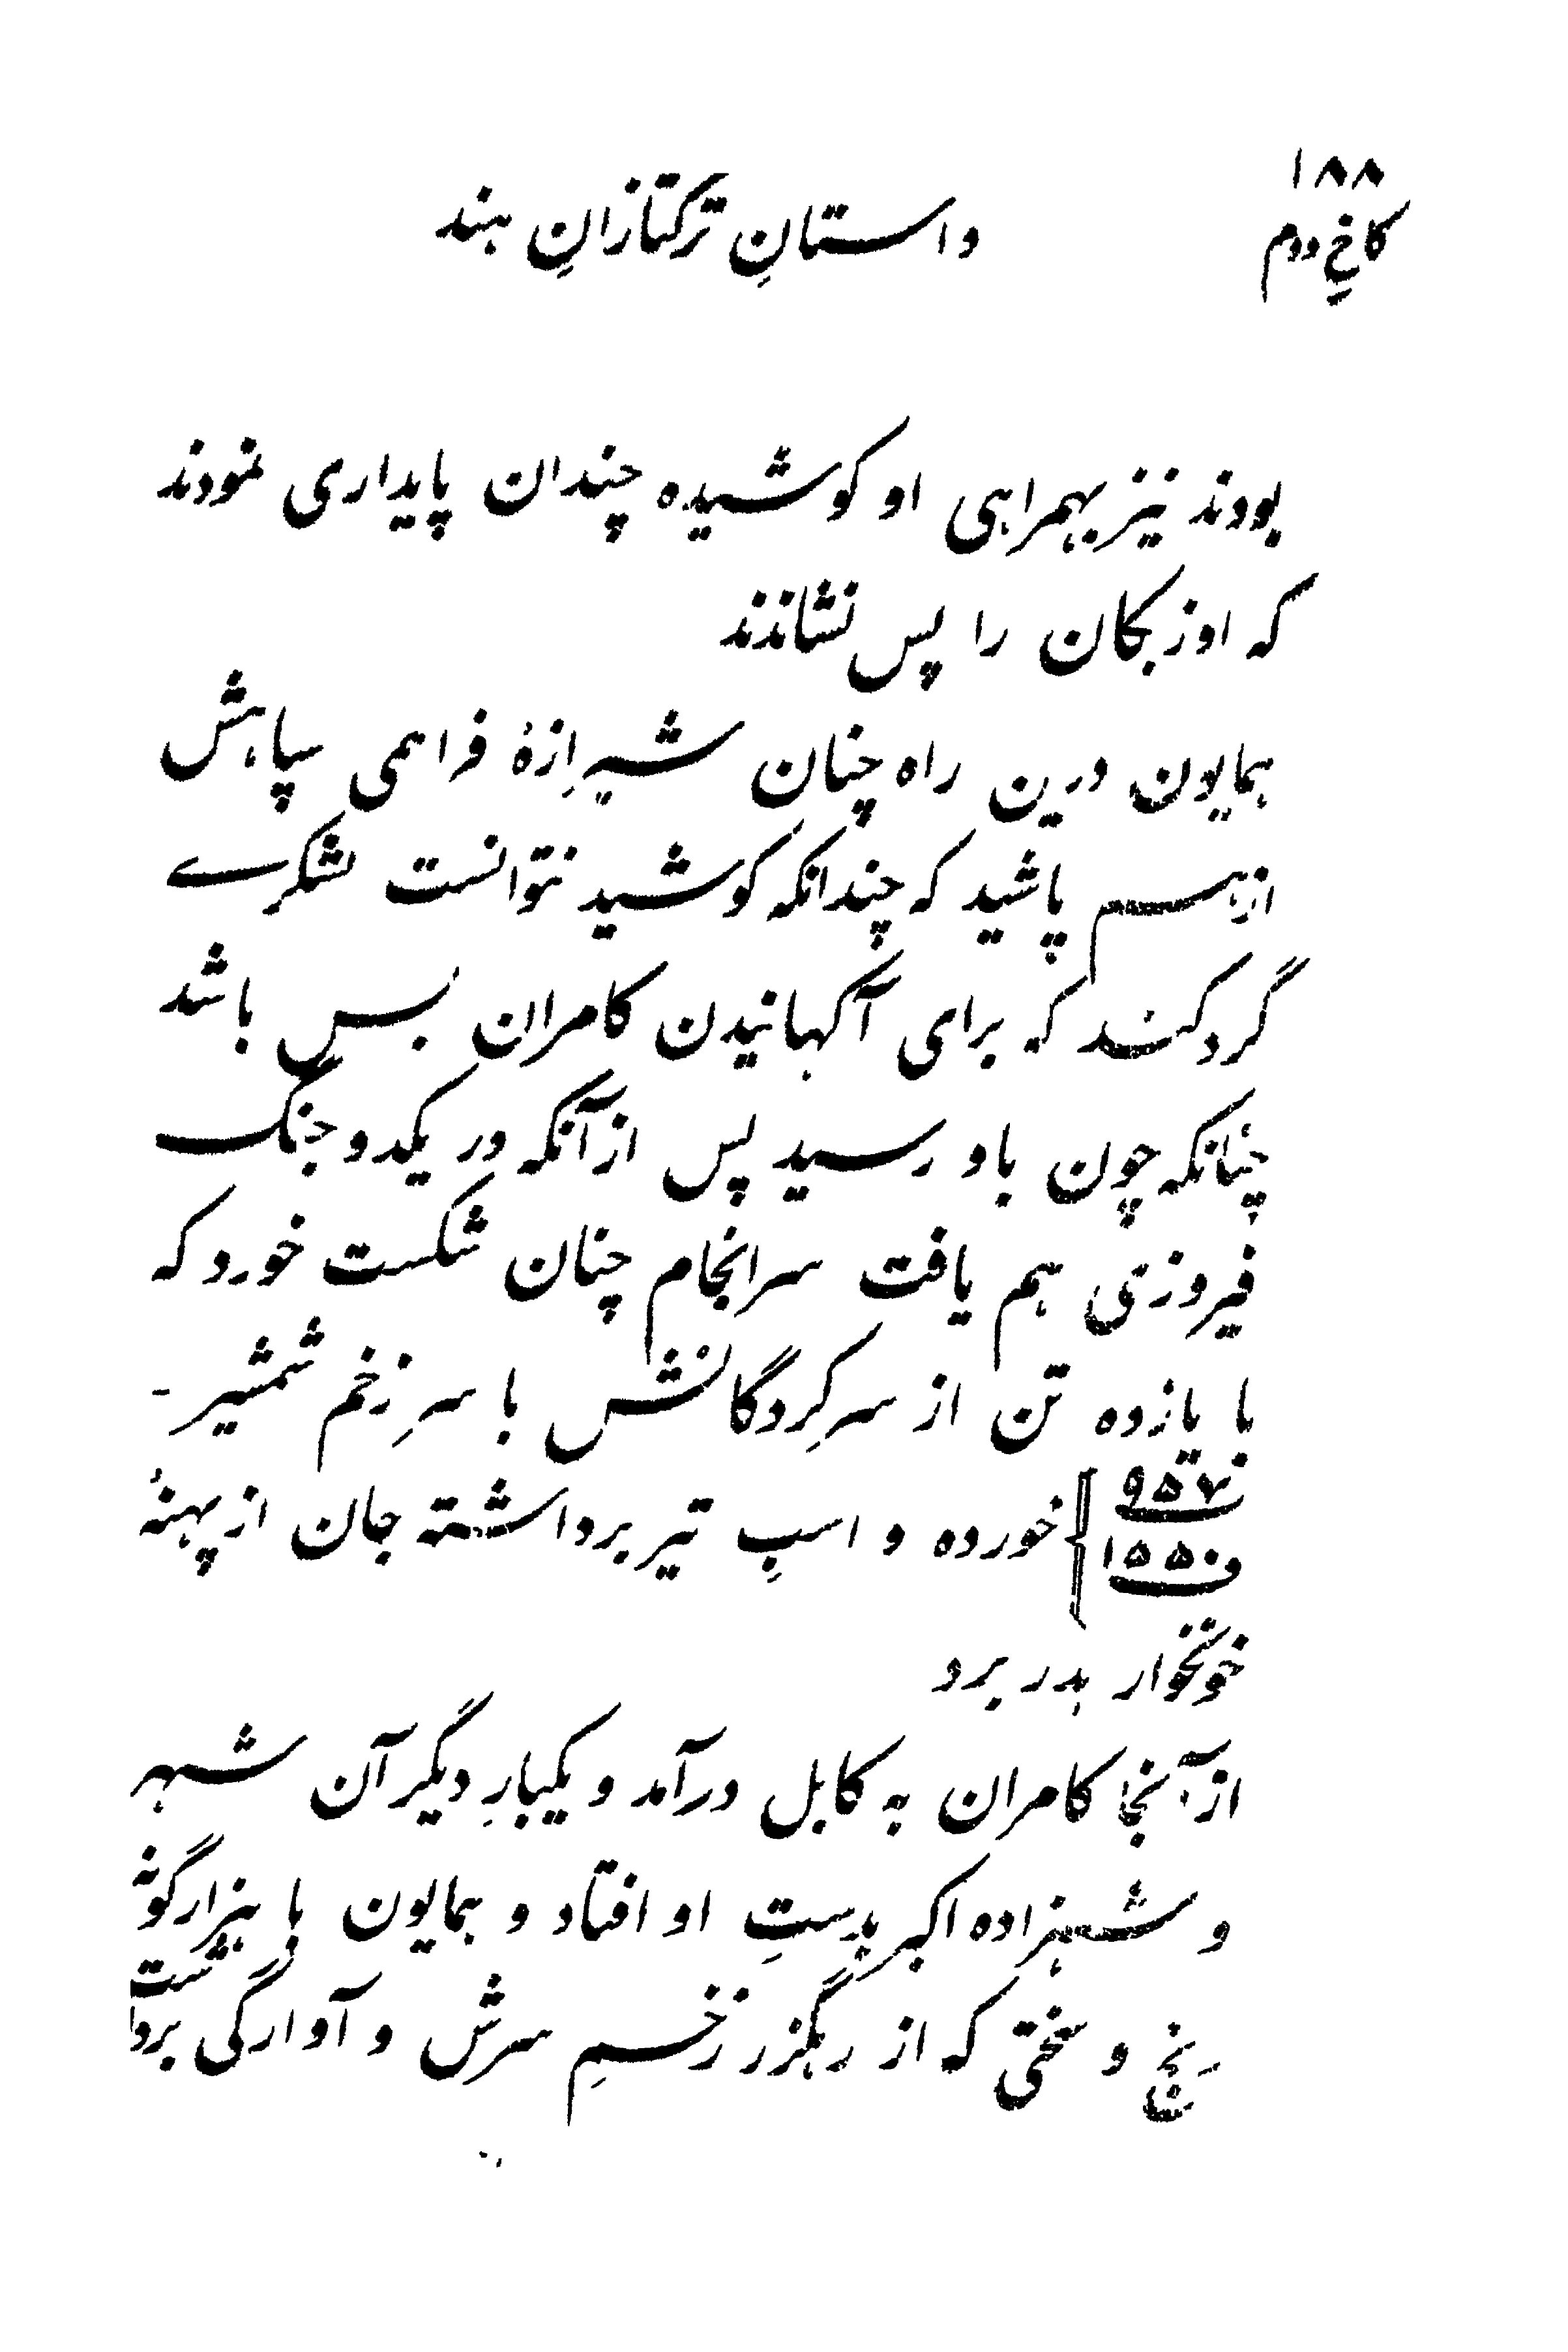 ۱۸۸
کاخِ دوم
داستانِ ترکتازانِ هند
بودند نیز بهمراهی او کوشیده چندان پایداری نمودند
که اوزبکان را پس نشاندند
همایون درین راه چنان شیرازهٔ فراهمی سپاهش
ازهم پاشید که چندانکه کوشید نتوانست لشکرے
گرد کند که برای آگهانیدن کامران بس باشد
چنانکه چون باو رسید پس از آنکه در یکدو جنگ
فیروزی هم یافت سرانجام چنان شکست خورد که
با یازده تن از سرکِردگانش با سرِ زخم شمشیر -
۹۵۷
۱۵۵۰
خورده و اسبِ تیر برداشته جان از پهنهٔ
خونخوار بدر برد
از آنجا کامران به کابل درآمد و یکبارِ دیگر آن شهر
و شهزاده اکبر بدستِ او افتاد و همایون با هزار گونه
رنج و سختی که از رهگزر زخمِ سرش و آوارگی برداشت